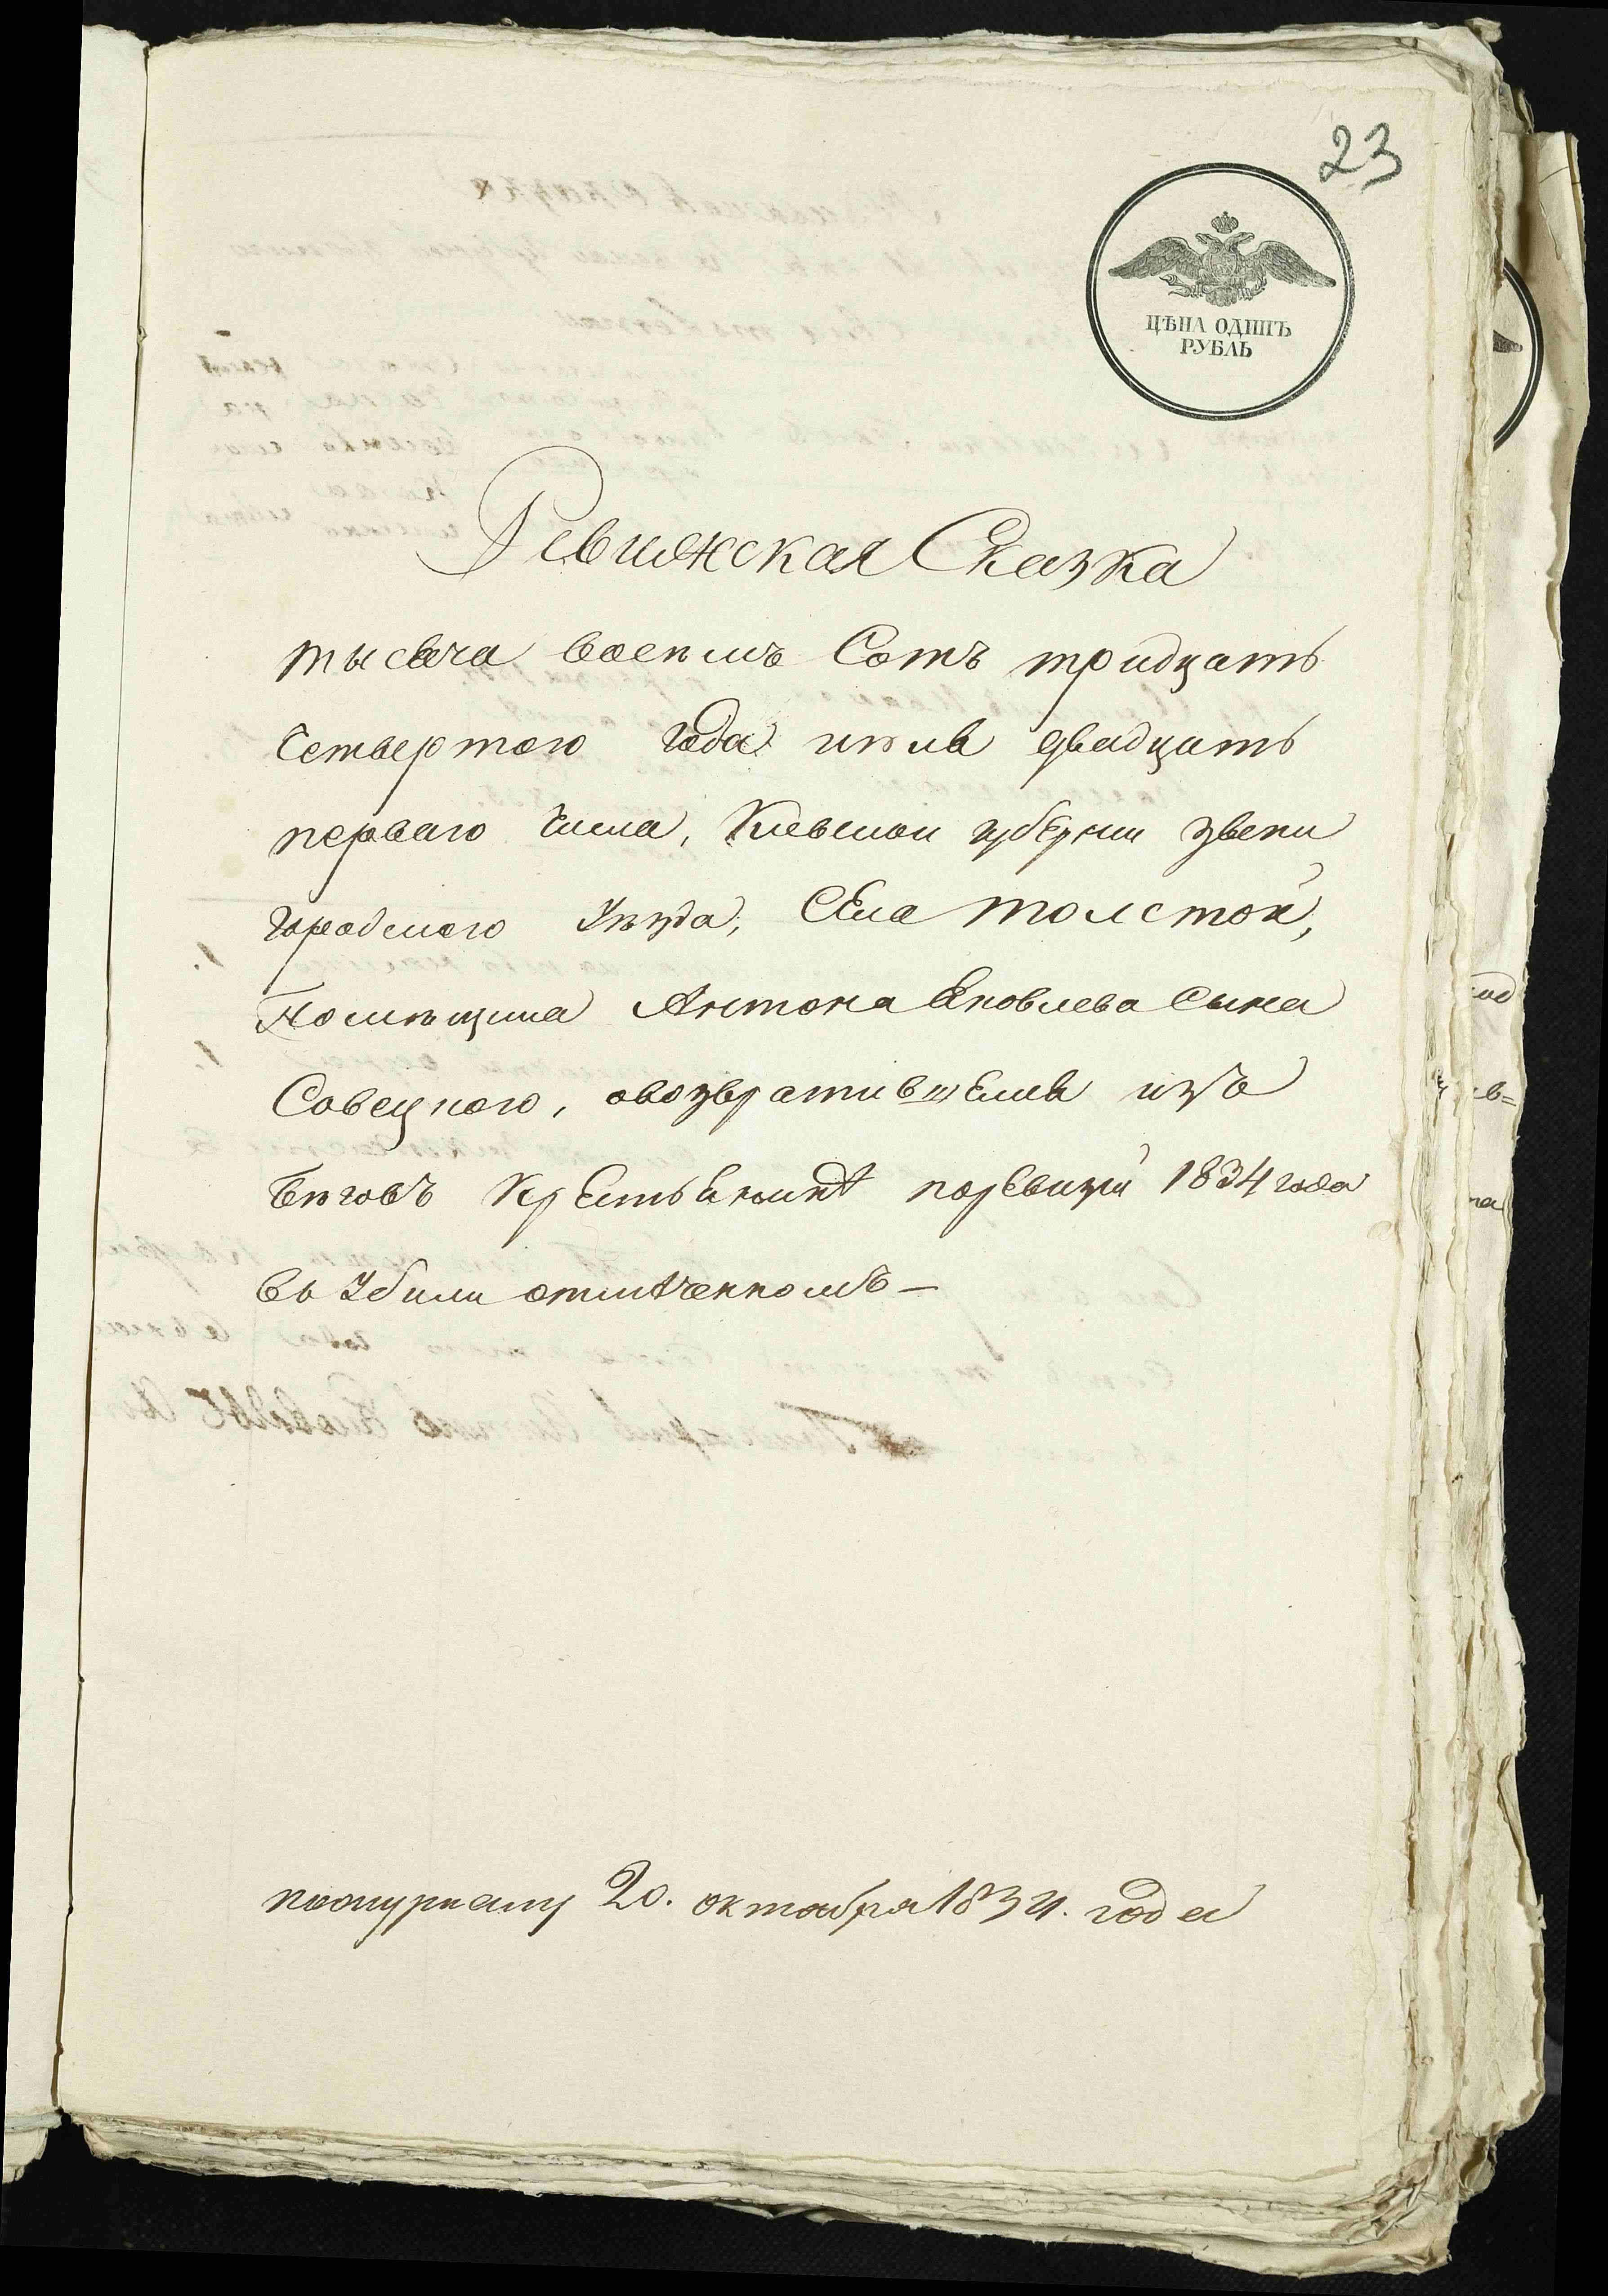 23
ЦѢНА ОДИНЪ
РУБЛЬ
Ревижская Сказка
тысеча восемъ Сотъ тридцать
Четвертого года июля двадцать
первого Числа, Киевской губернии звени
городского уѣзда, Села толстой,
Помѣщика Антона Яковлева Сына
Совецкого, овозвратившемся изъ
бѣговъ Крестьянинѣ поревизіи 1834 года
въ убили отмѣченномъ —
пожурналу 20. октября 1834. года